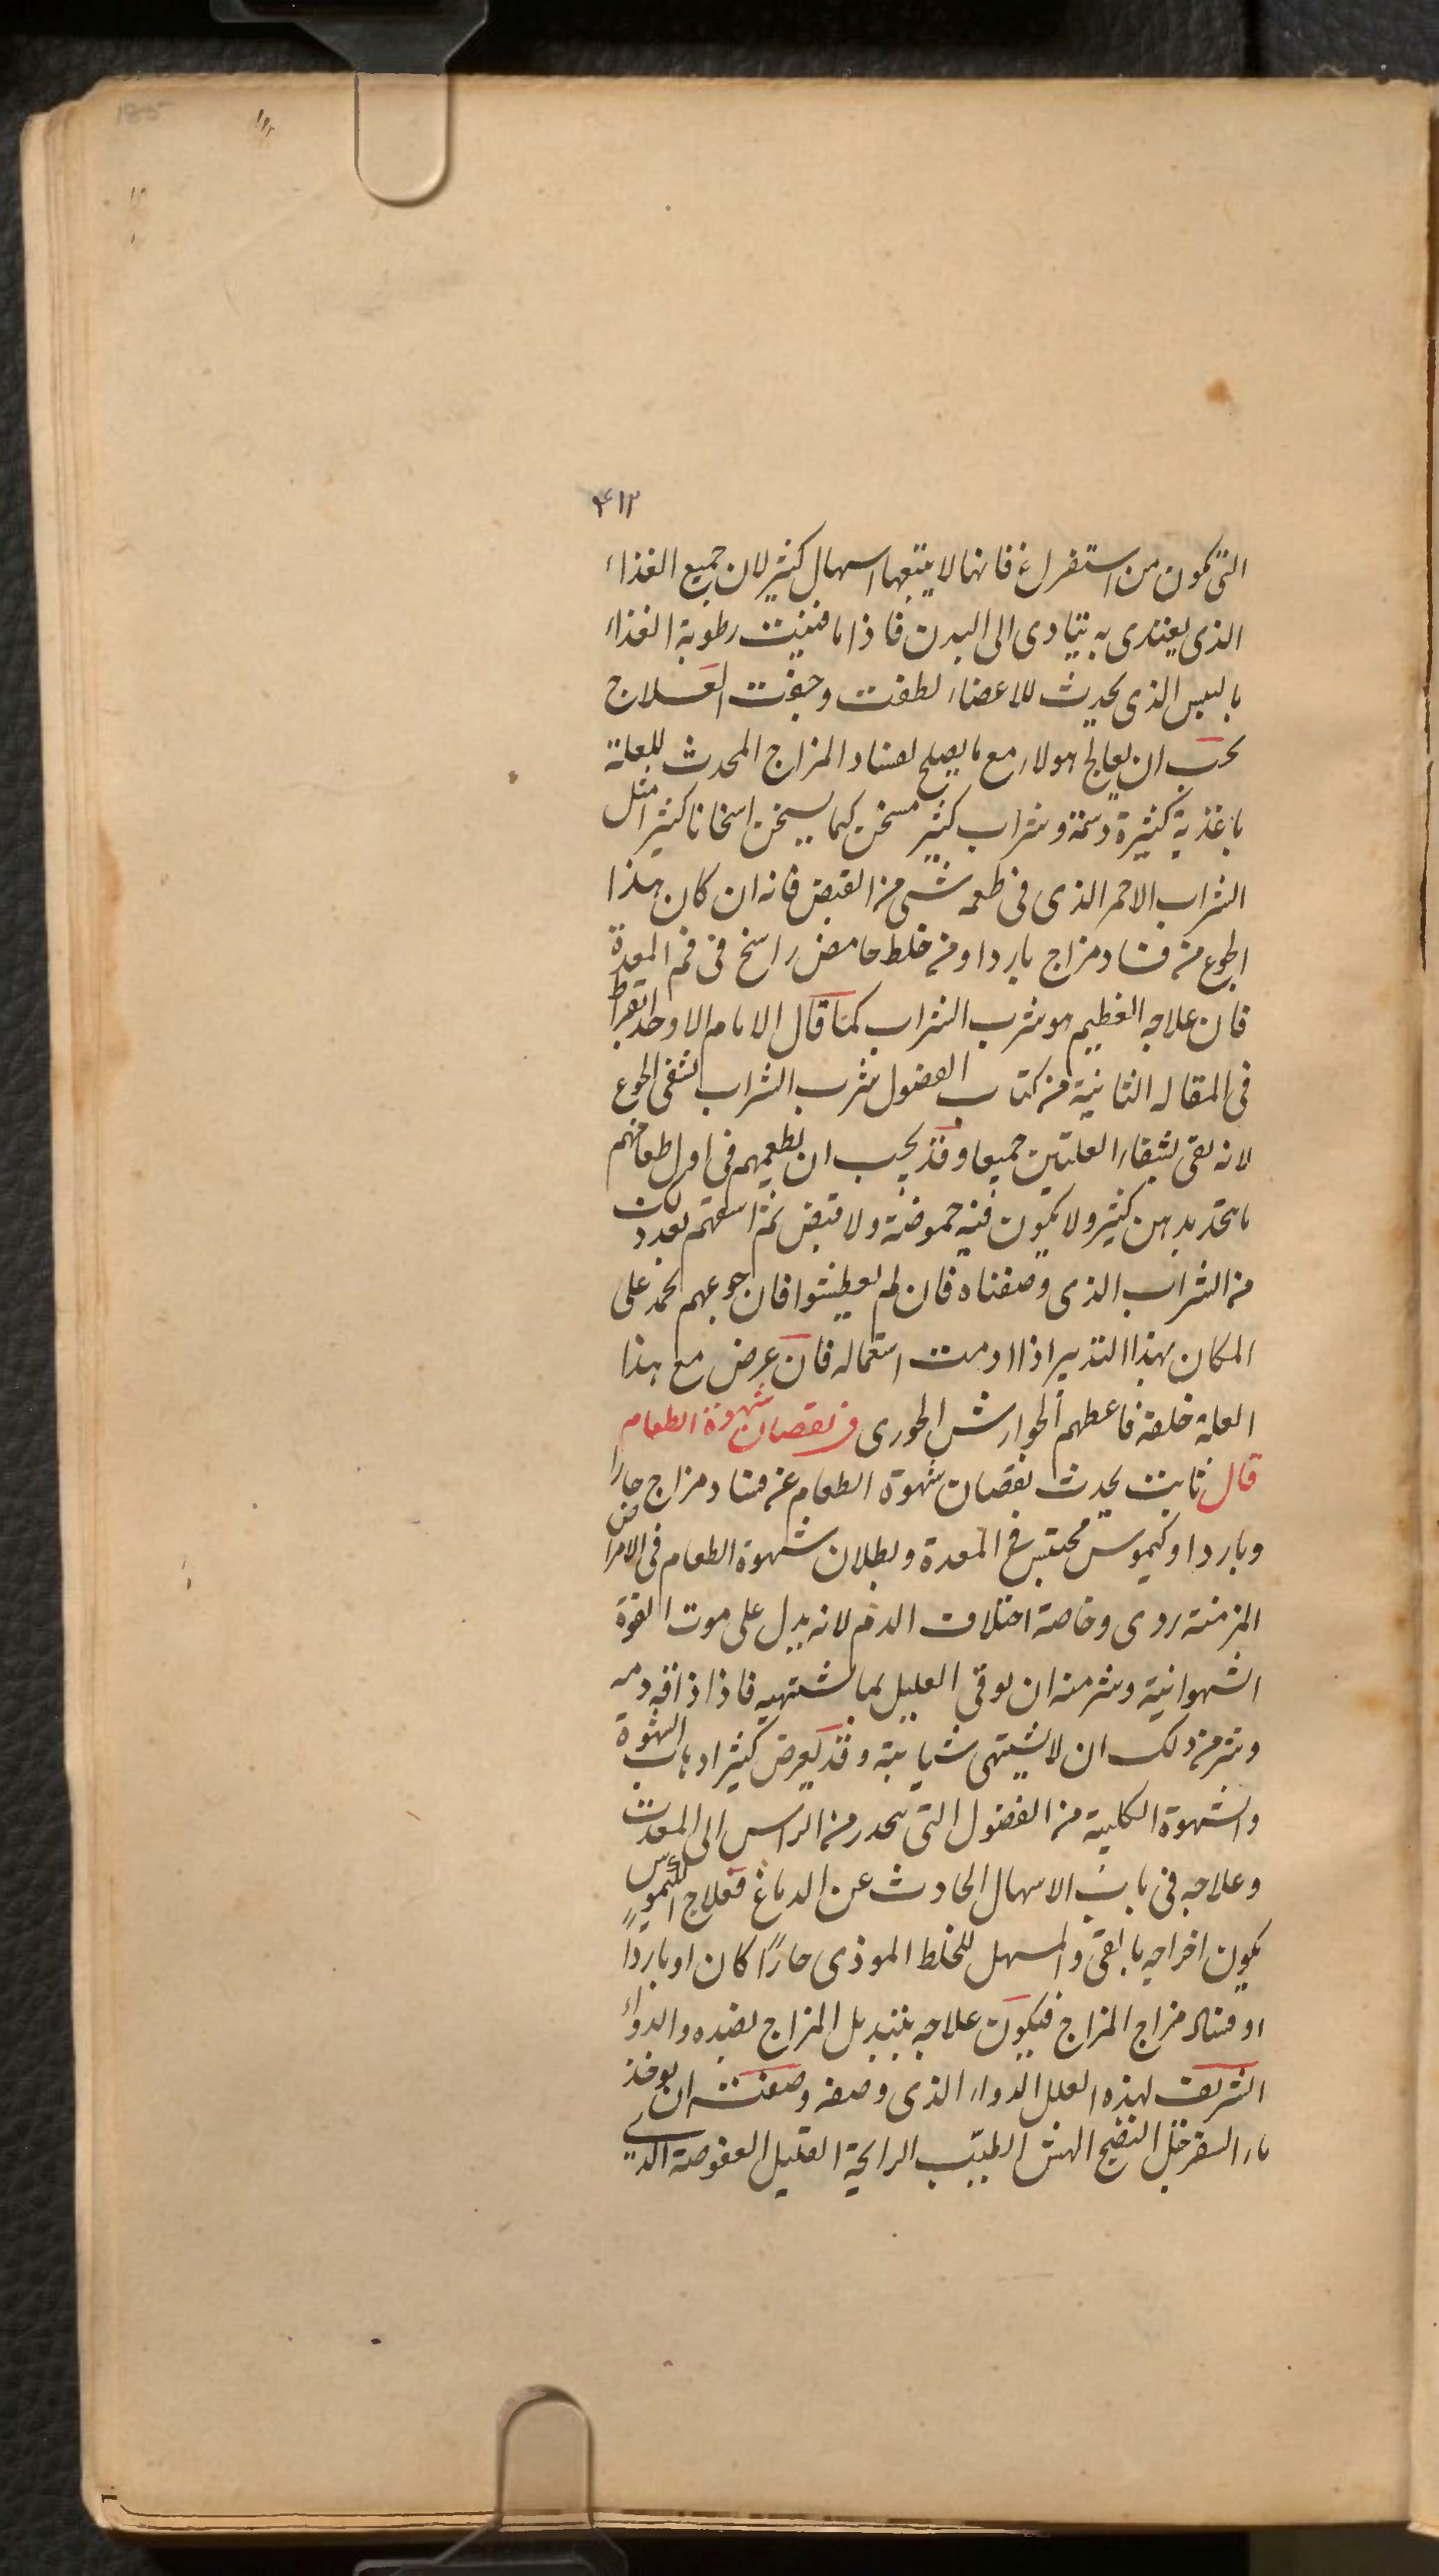 ۴۱۲
التی تکون من استفراغ فانها لا یتبعها اسهال کثیر لان جمیع الغذاء
الذی یغتذی به یتادی الی البدن فاذا ما فنیت رطوبة الغذاء
بالیبس الذی یحدث للاعضاء لطفت وجفت العلاج
یجب ان یعالج هولاء مع ما یصلح لفساد المزاج المحدث للعلة
باغذیة کثیرة دسمة وشراب کثیر مسخن کیما یسخن اسخانا کثیرا مثل
الشراب الاحمر الذی فی طعمه شی من القبض فانه ان کان هذا
الجوع من فساد مزاج بارد او من خلط حامض راسخ فی فم المعدة
فان علاجه العظیم هو شرب الشراب کما قال الامام الاوحد ابقراط
فی المقاله الثانیة من کتاب الفصول شرب الشراب یشفی الجوع
لانه یقی بشفاء العلتین جمیعا وقد یجب ان یطعمهم فی اول طعامهم
ما یتخذ بدهن کثیر ولا یکون فیه حموضة ولا قبض ثم اسقهم بعد ذلک
من الشراب الذی وصفناه فان لم یعطشوا فان جوعهم یخمد علی
المکان بهذا التدبیر اذا ادمت استعماله فان عرض مع هذا
العلة خلفة فاعطهم الجوارش الحوری فی نقصان شهوة الطعام
قال ثابت یحدث نقصان شهوة الطعام عن فساد مزاج حارا
وباردا وکیموس محتبس فی المعدة وبطلان شهوة الطعام فی الامراض
المزمنة ردی وخاصة اختلاف الدم لانه یدل علی موت القوة
الشهوانیة وشر منه ان یوقی العلیل بما یشتهیه فاذا ذاقه ذمه
وشر من ذلک ان لا یشتهی شیا بتة وقد یعرض کثیرا ذهاب الشهوة
والشهوة الکلبیة من الفضول التی تنحدر من الراس الی المعدة
وعلاجه فی باب الاسهال الحادث عن الدماغ فعلاج الکیموس
یکون اخراجه بالقی والمسهل للخلط الموذی حارًا کان او باردًا
او فساد مزاج المزاج فیکون علاجه بتبدیل المزاج بضده والدواء
الشریف لهذه العلل الدواء الذی وصفه وصفته ان یوخذ
ماء السفرجل النضیج الهش الطیّب الرایحة القلیل العفوصة الذی